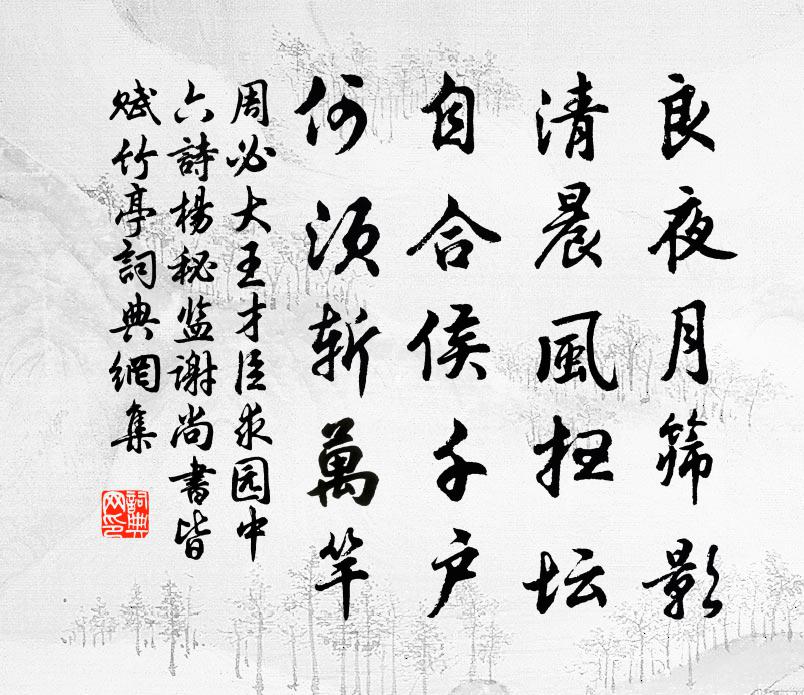 良夜月筛影
清晨風扫坛
自合侯千户
何须斩萬竿
周必大王才臣求园中
六詩楊秘监谢尚書皆
赋竹亭詞典網集
詞典网印